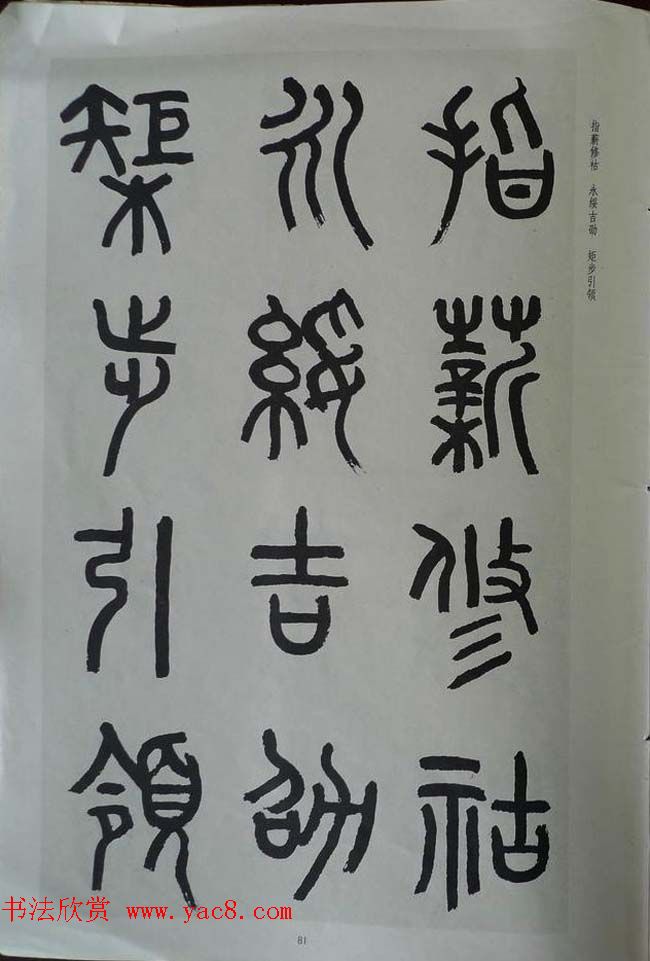 指薪修祜
永绥吉劭
矩步引领
指薪修祜 永绥吉劭 矩步引领
书法欣赏 www.yac8.com
81